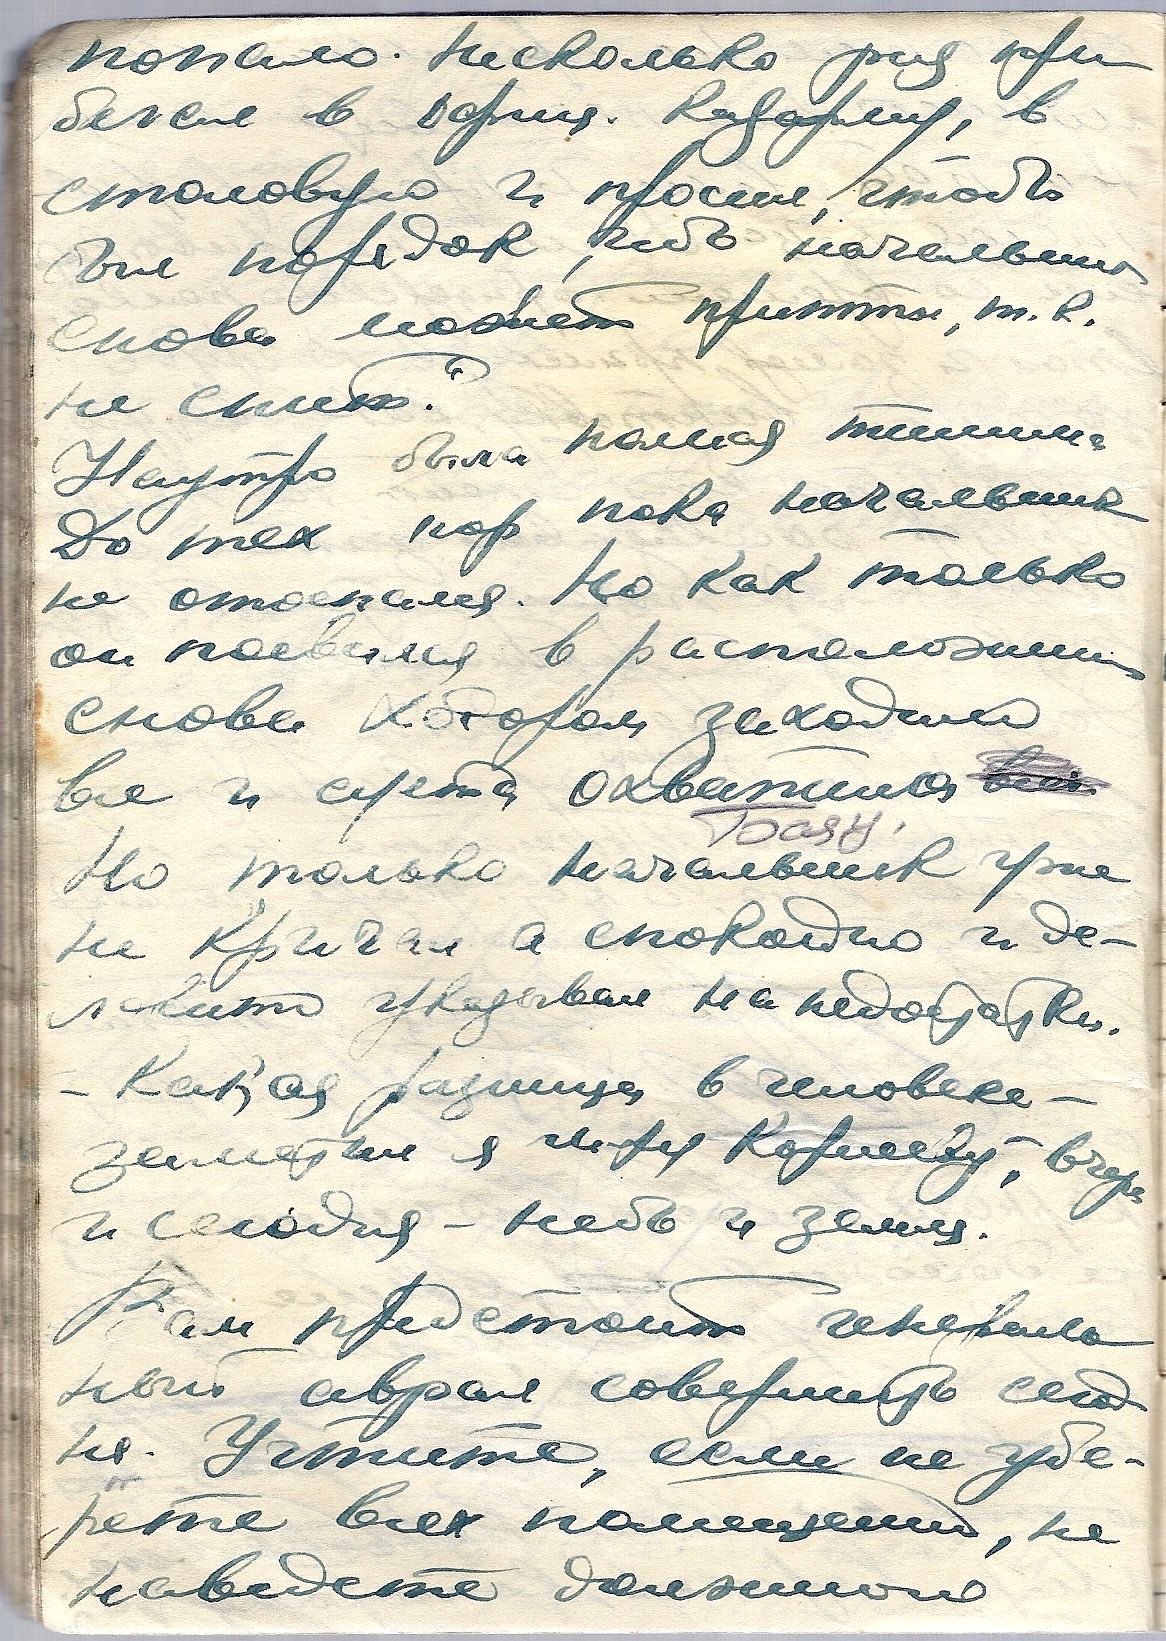 попало. Несколько раз при
бегал в офиц. казарму, в
столовую и просил, чтоб
был порядок, ибо начальник
снова может притти, т.к.
не спит."
Наутро была полная тишина
До тех пор пока начальник
не отоспался. Но как только
он появился в расположении
снова ходором заходило
все и суета охватила
базу.
Но только начальник уже
не кричал а спокойно и де-
ликатно указывал на недостатки.
- Какая разница в человеке -
заметил я, вчера
и сегодня - небо и земля.
Вам предстоит генераль
ный аврал совершить сегод
ня. Учтите, если не убе-
рете всех помещений, не
наведете должного